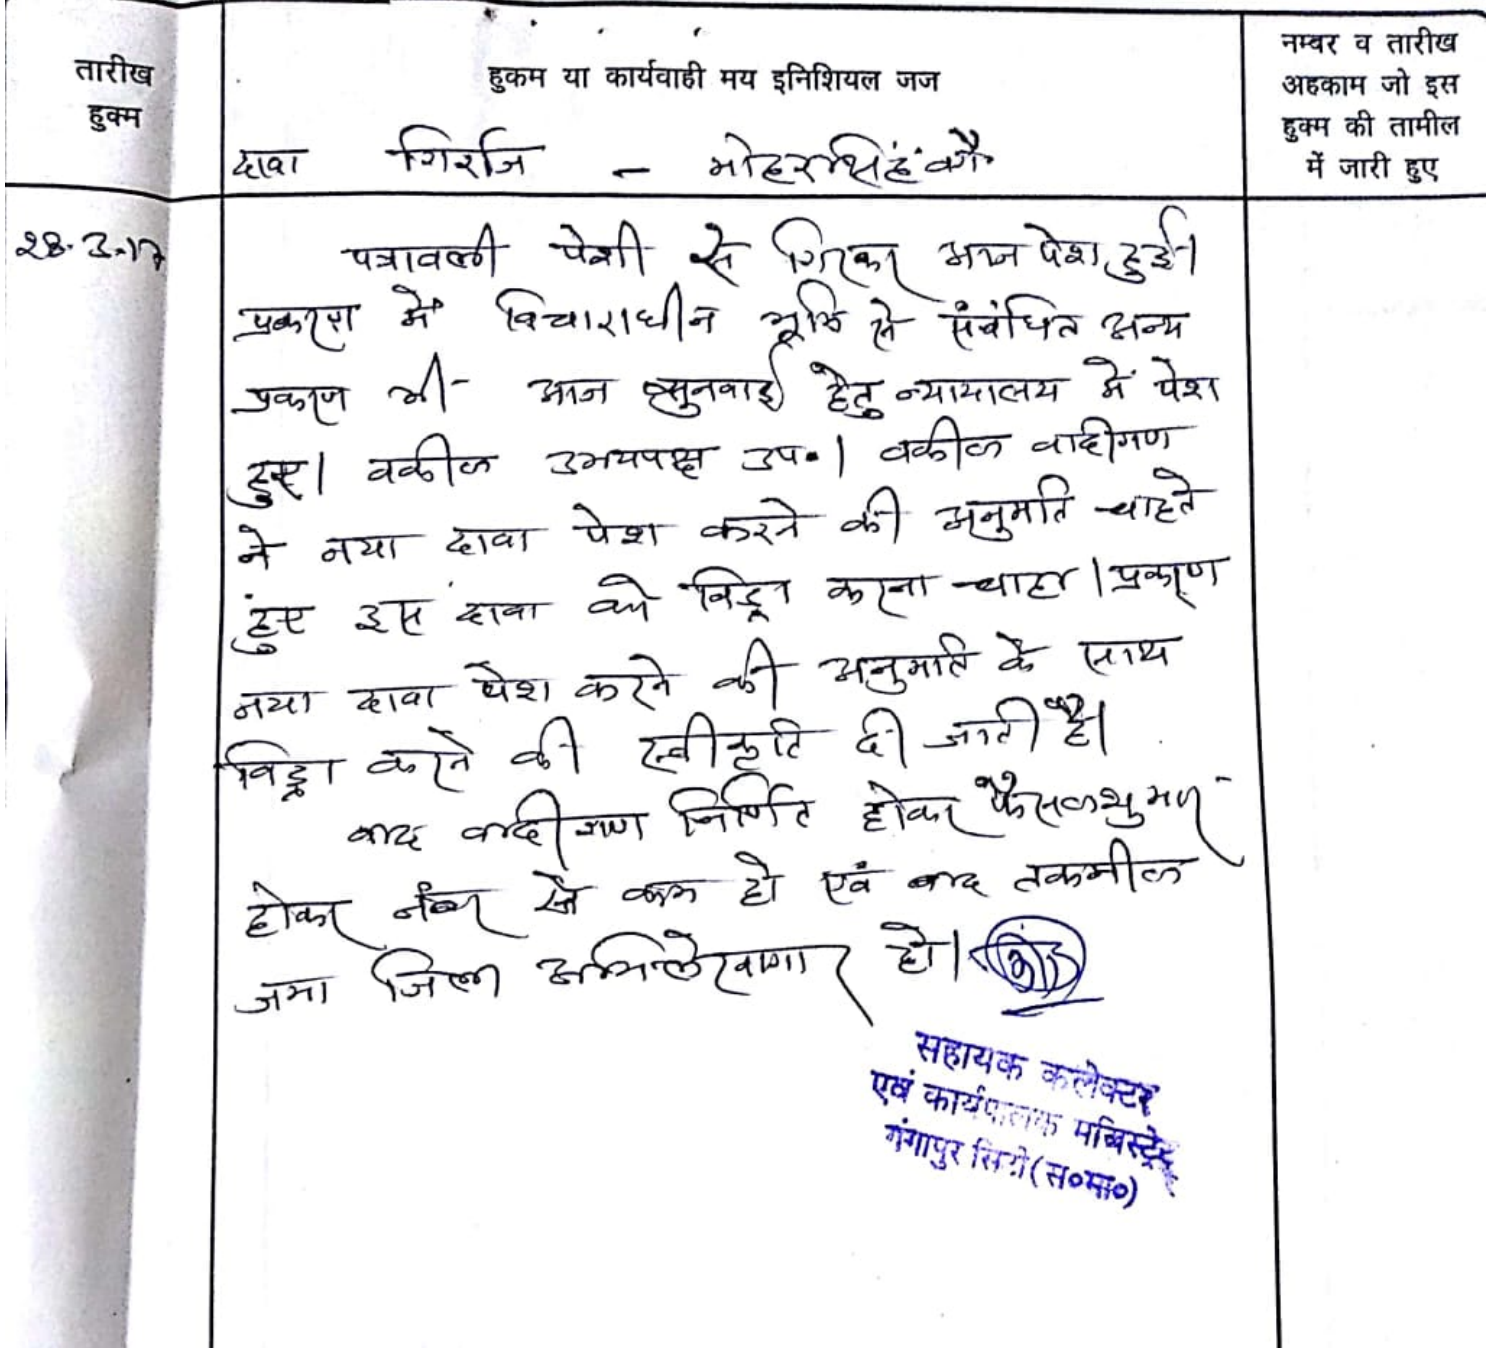 तारीख
हुक्म
हुकम या कार्यवाही मय इनिशियल जज
नम्बर व तारीख
अहकाम जो इस
हुक्म की तामील
में जारी हुए
दावा गिर्राज - मोहरसिंह वगै.
28.3.17
पत्रावली पेशी से गिरकर आज पेश हुई।
प्रकरण में विचाराधीन भूमि से संबंधित अन्य
प्रकरण भी आज सुनवाई हेतु न्यायालय में पेश
हुए। वकील उभयपक्ष उप.। वकील वादीगण
ने नया दावा पेश करने की अनुमति चाहते
हुए इस दावा को विड्रा करना चाहा। प्रकरण
नया दावा पेश करने की अनुमति के साथ
विड्रा करने की स्वीकृति दी जाती है।
वाद वादीगण निर्णित होकर फैसलशुमार
होकर नंबर से कम हो एवं बाद तकमील
जमा जिला अभिलेखागार हो।
सहायक कलेक्टर
एवं कार्यपालक मजिस्ट्रेट
गंगापुर सिटी (स०मा०)